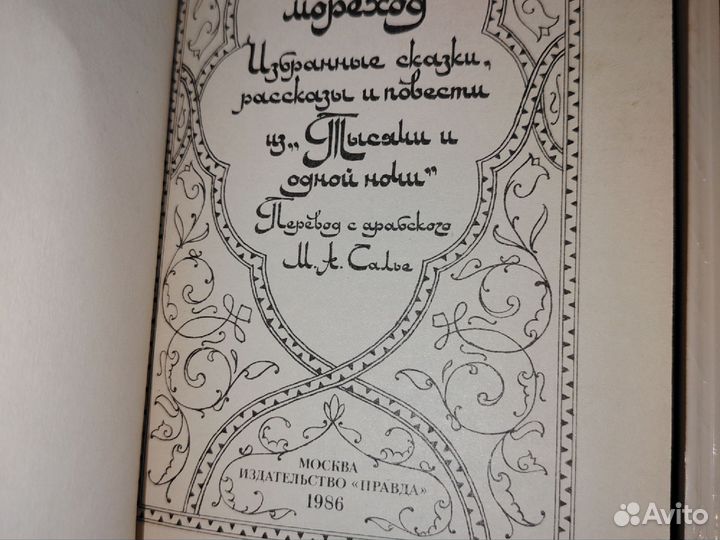 мореход
Избранные сказки,
рассказы и повести
из „Тысячи и
одной ночи“
Перевод с арабского
М. А. Салье
МОСКВА
ИЗДАТЕЛЬСТВО «ПРАВДА»
1986
Avito